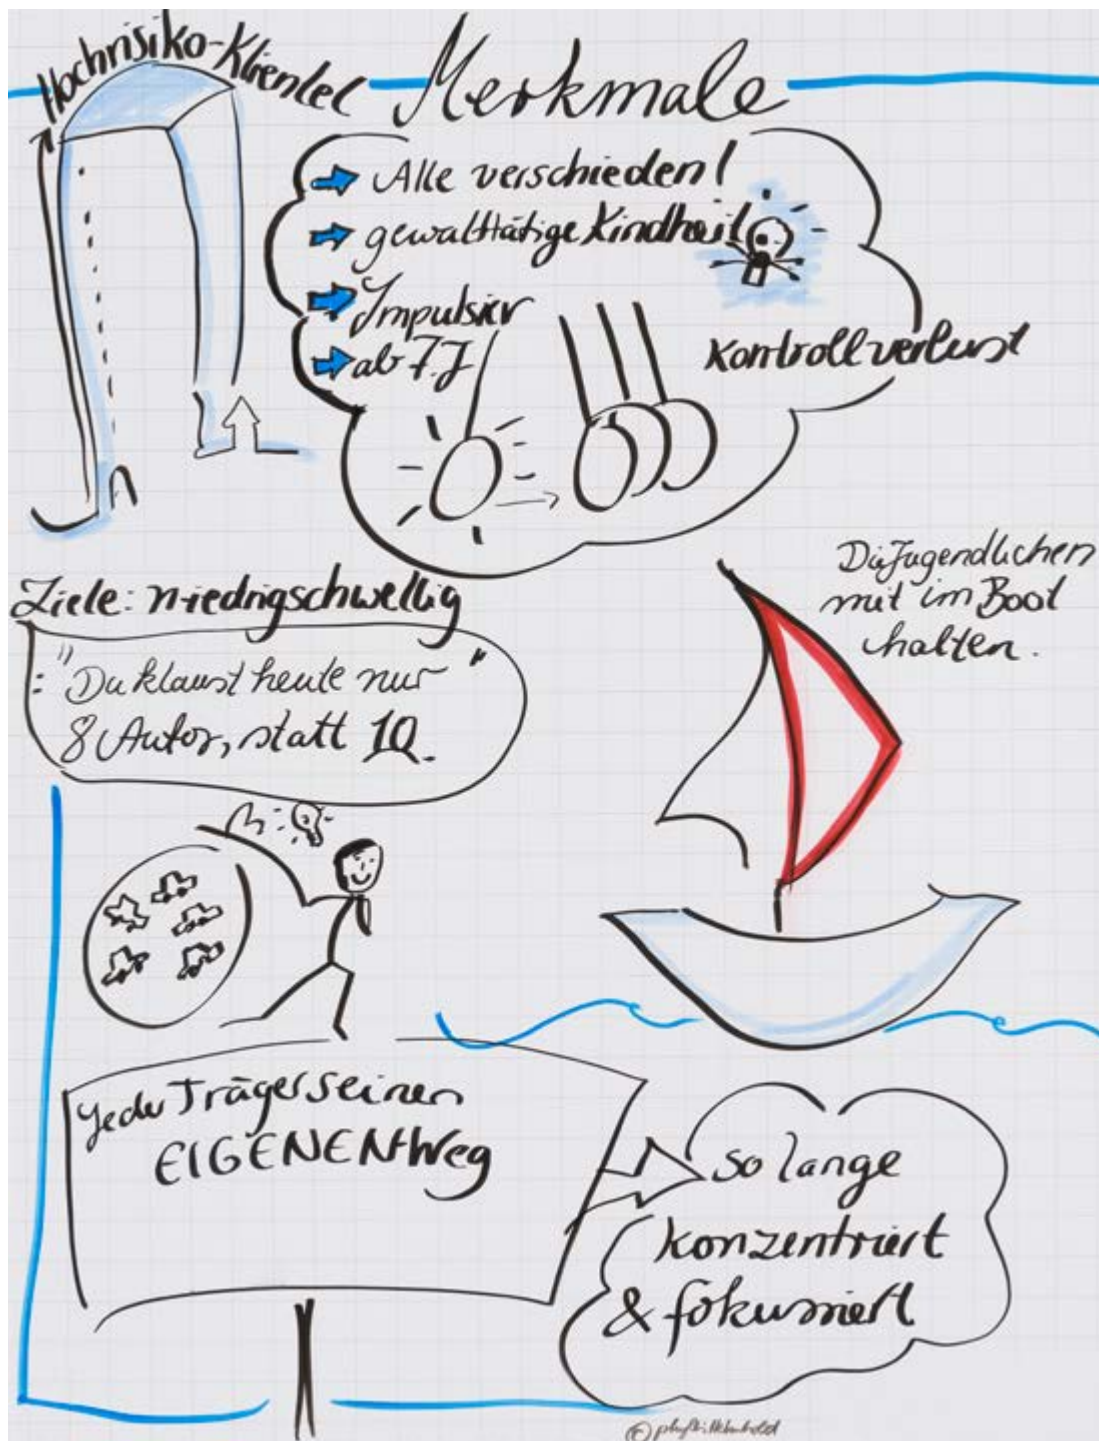 Hochrisiko-Klientel
Merkmale
Alle verschieden!
gewalttätige Kindheit
Impulsiv
ab 7.J
Kontrollverlust
Ziele: niedrigschwellig
"Du klaust heute nur"
8 Autos, statt 10.
Die Jugendlichen
mit im Boot
halten.
Jeder Träger seinen
EIGENEN Weg
so lange
konzentriert
& fokussiert
©